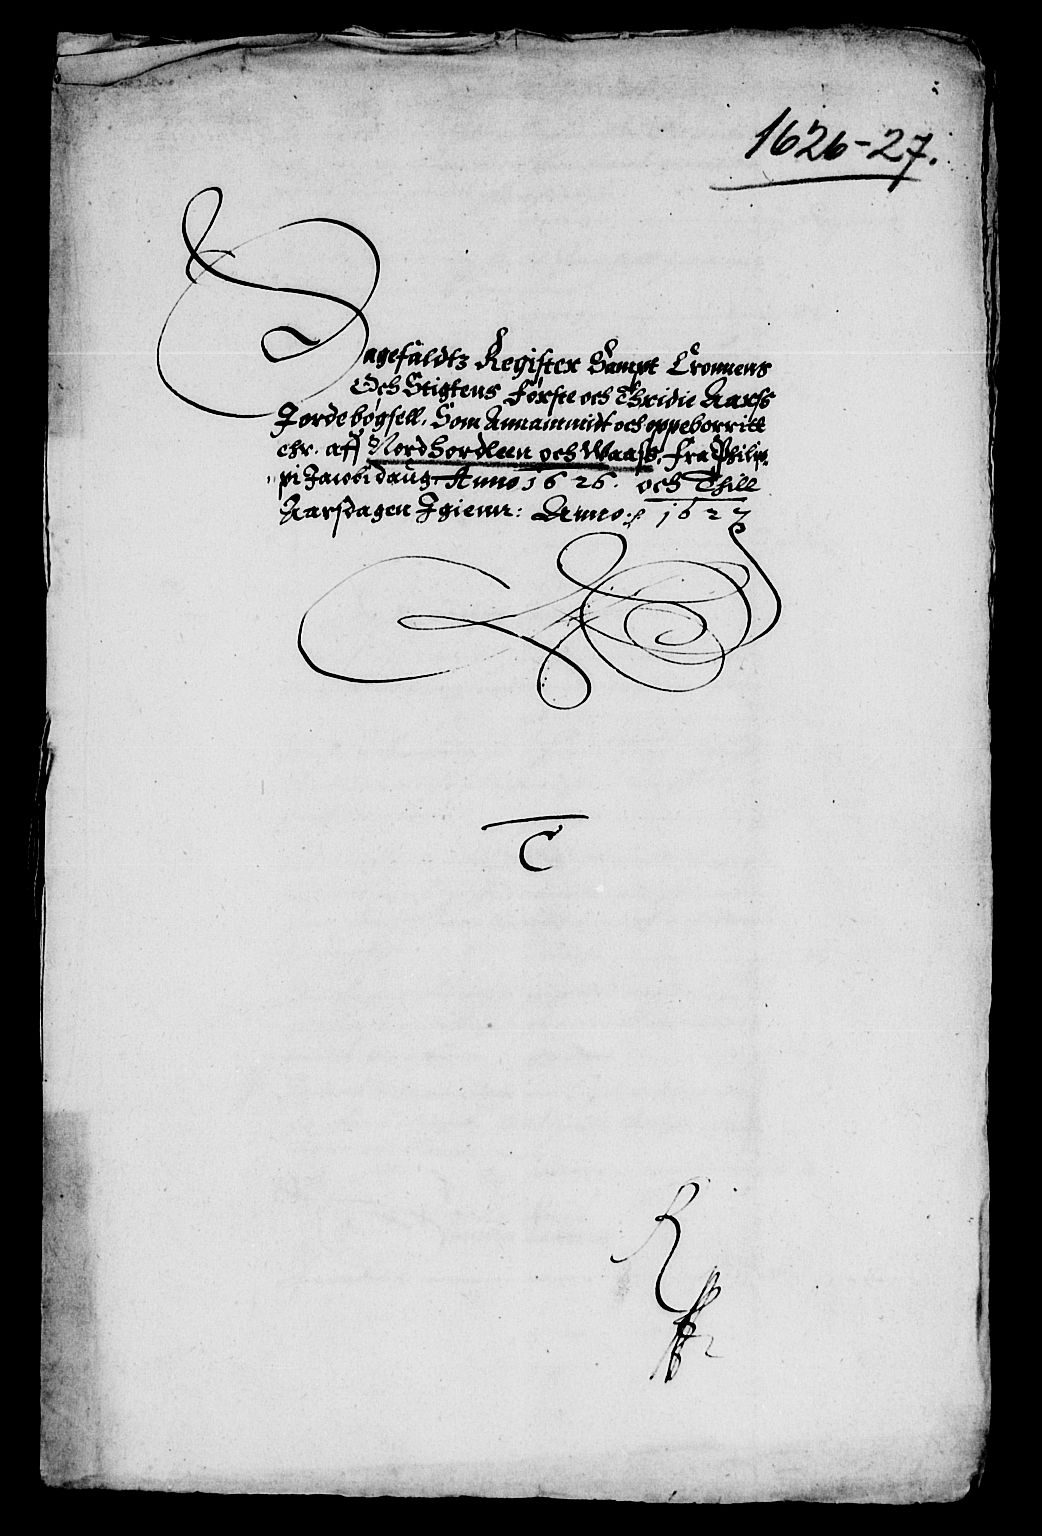 1626-27.
Sagefaldtz Register Sampt Cronnens
Och Stigtens Første och Thridie Aarss
Jordebøgsell. Som Annammidt och oppeborritt
ehr. aff Nordhordleen och Waass, fra Philip-
pi Jacobi daug Anno 1626. och Thill
Aarsdagen Igienn: Anno: 1627
C
R